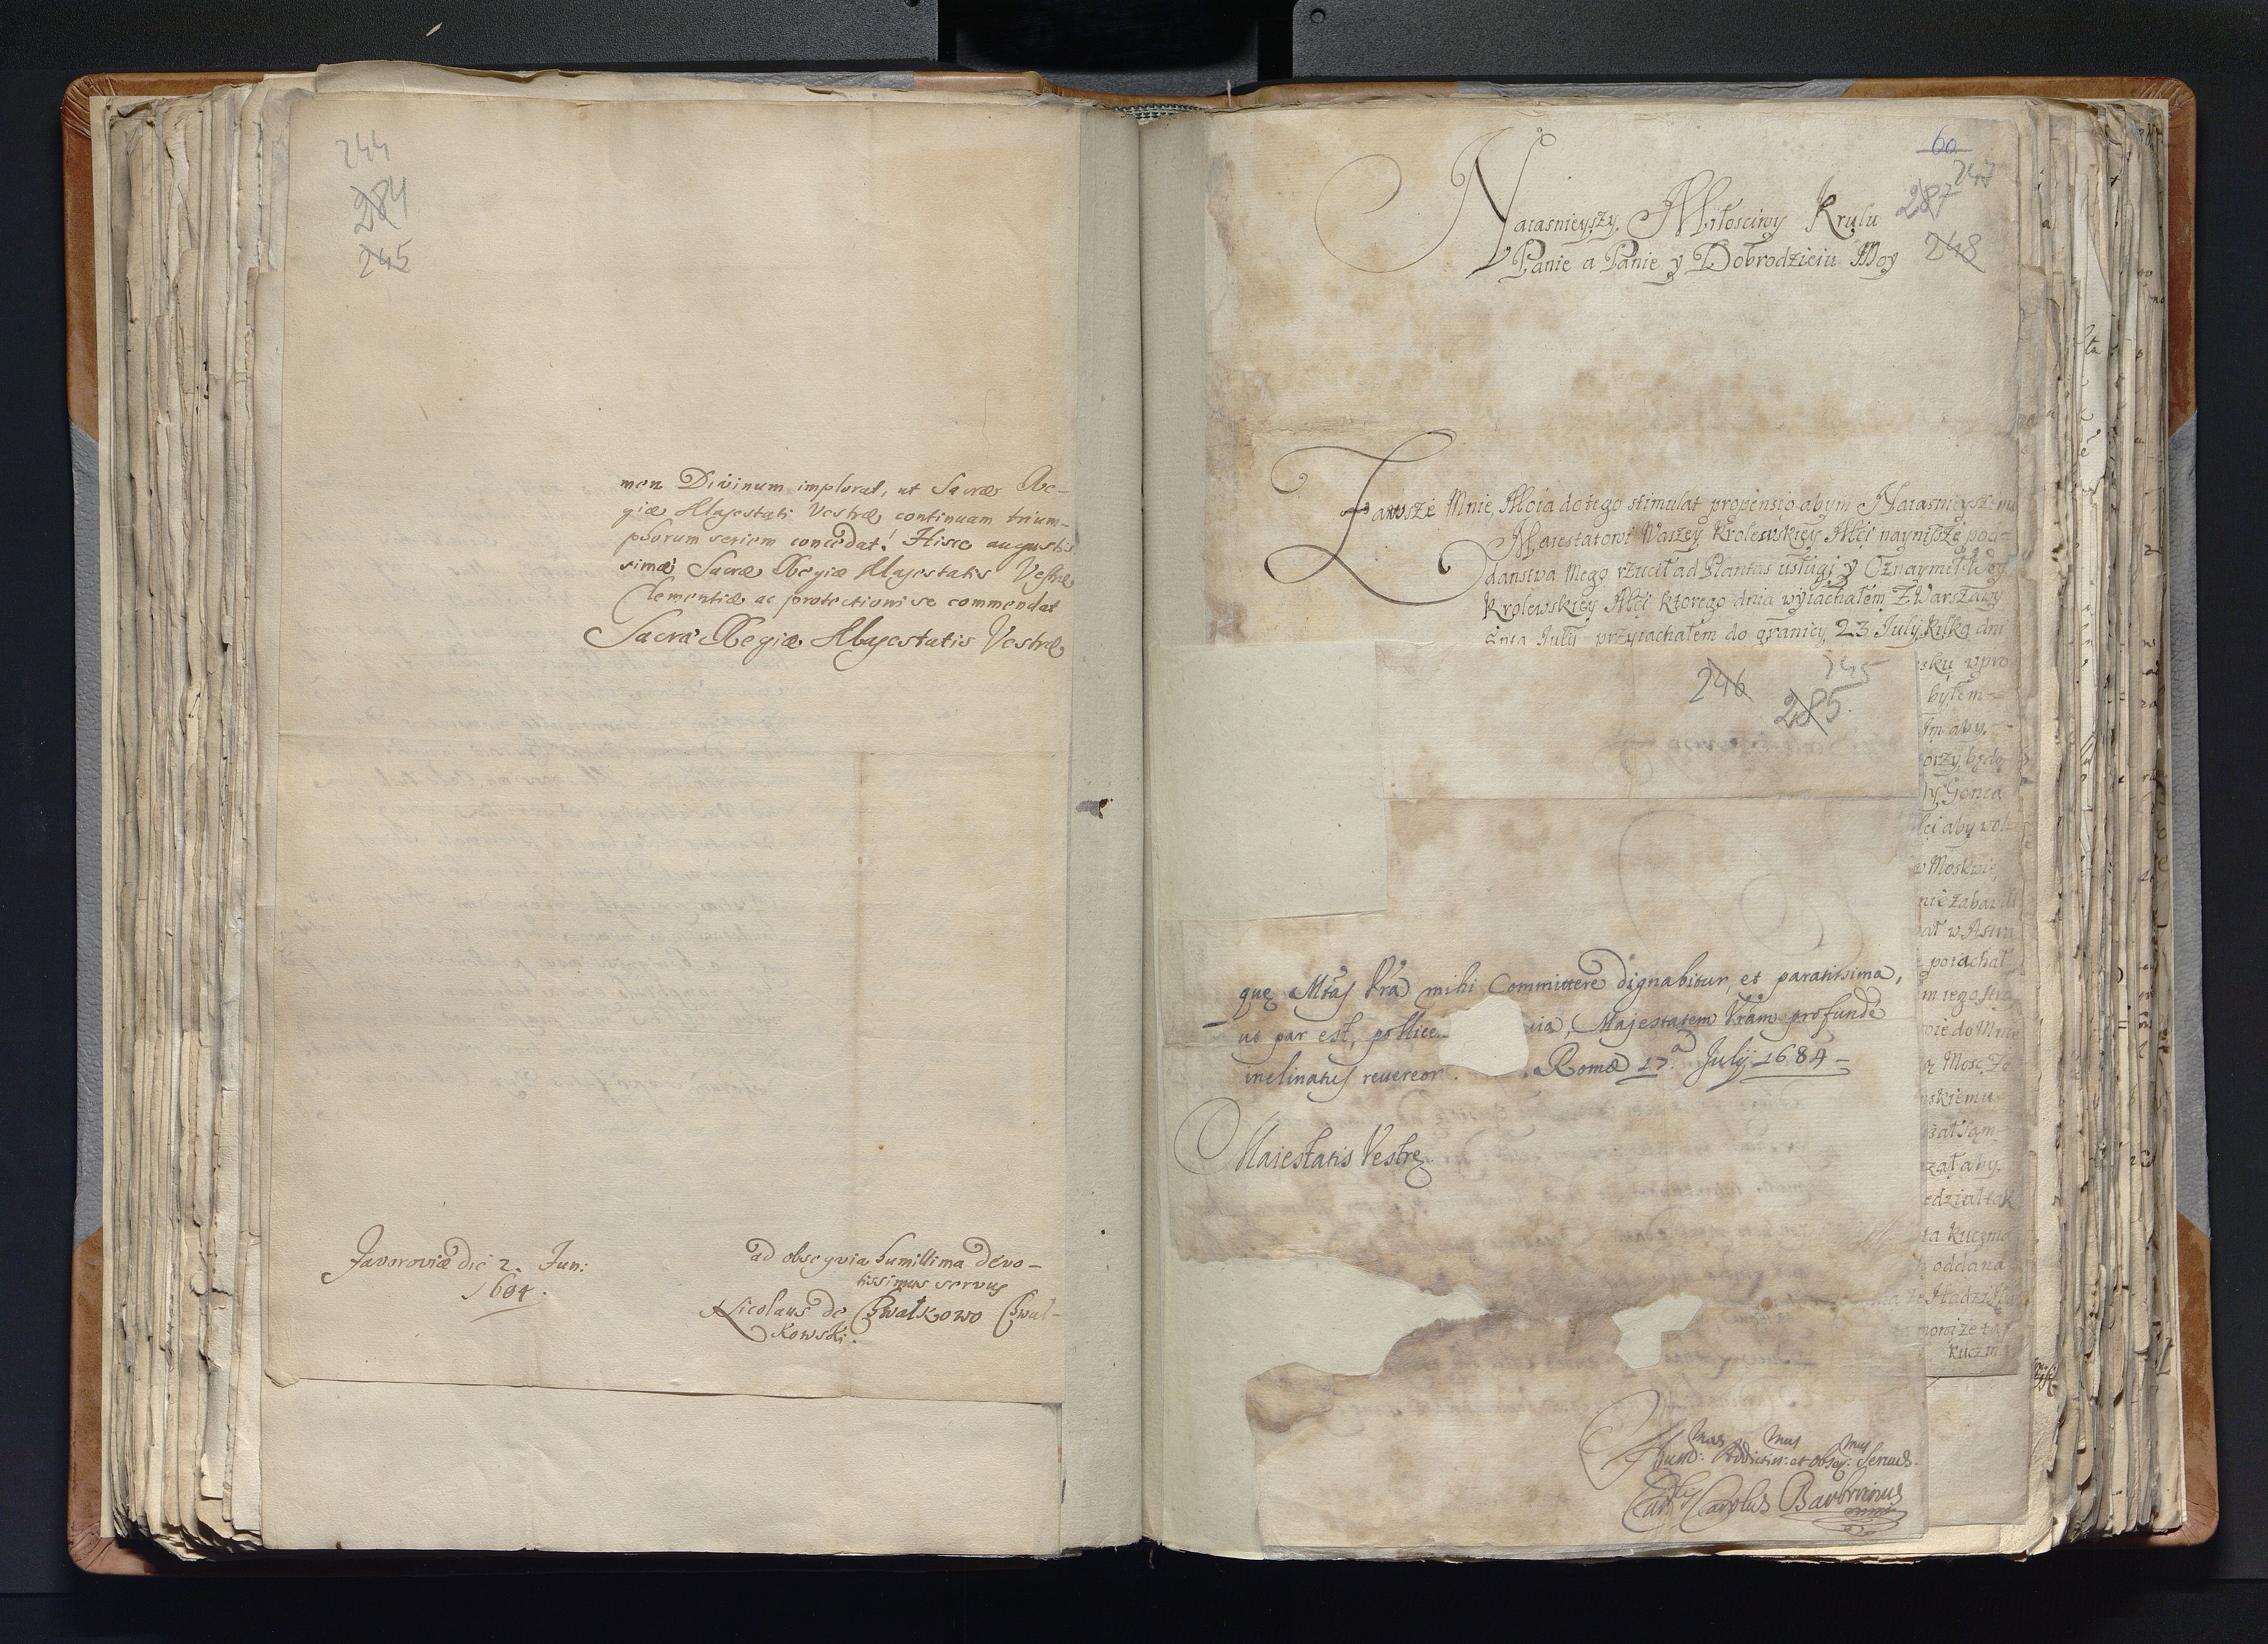 244
284
245
men Divinum implorat, ut Sacræ Re-
giæ Majestati Vestræ continuam trium-
phorum seriem concedat! Hisce augustis
simæ Sacræ Regiæ Majestatis Vestræ
Clementiæ ac protectioni se commendat
Sacræ Regiæ Majestatis Vestræ
Javoroviæ die 2. Jun:
1684.
ad obsequia humillima devo-
tissimus servus
Nicolaus de Chwałkowo Chwał-
kowski.
60
247
287
248
Naiasnieyszy Miłosciwy Krulu
Panie a Panie y Dobrodzieiu Moy
Zawsze Mnie Moia do tego stimulat propensio abym Naiasnieyszemu
Maiestatowi Waszey Krolewskiey Mći nayniższe pod-
danstwa Mego rzucił ad Plantas usługi y Oznaymił W
Krolewskiey Mći ktorego dnia wyiachałem Z Warszawy
dnia July przyiachałem do granicy 23 July kilka dni
sku wpro
byłem
im aby
orzy będą
y Gonca
ci aby wol
w Moskwie
nie zabawili
porachał
skiemu
zał aby
edział tak
ta Kuczma
oddana
kuczm
245
246
285.
quę Mtas Vra mihi Committere dignabitur, et paratissima,
ut par est, pollice ia, Majestatem Vram profunde
inclinatus reuereor. Romæ 17.a July 1684
Maiestatis Vestrę
Hum:mus Addictiss:mus et obseq:mus Seruus
Car:lis Carolus Barberinus